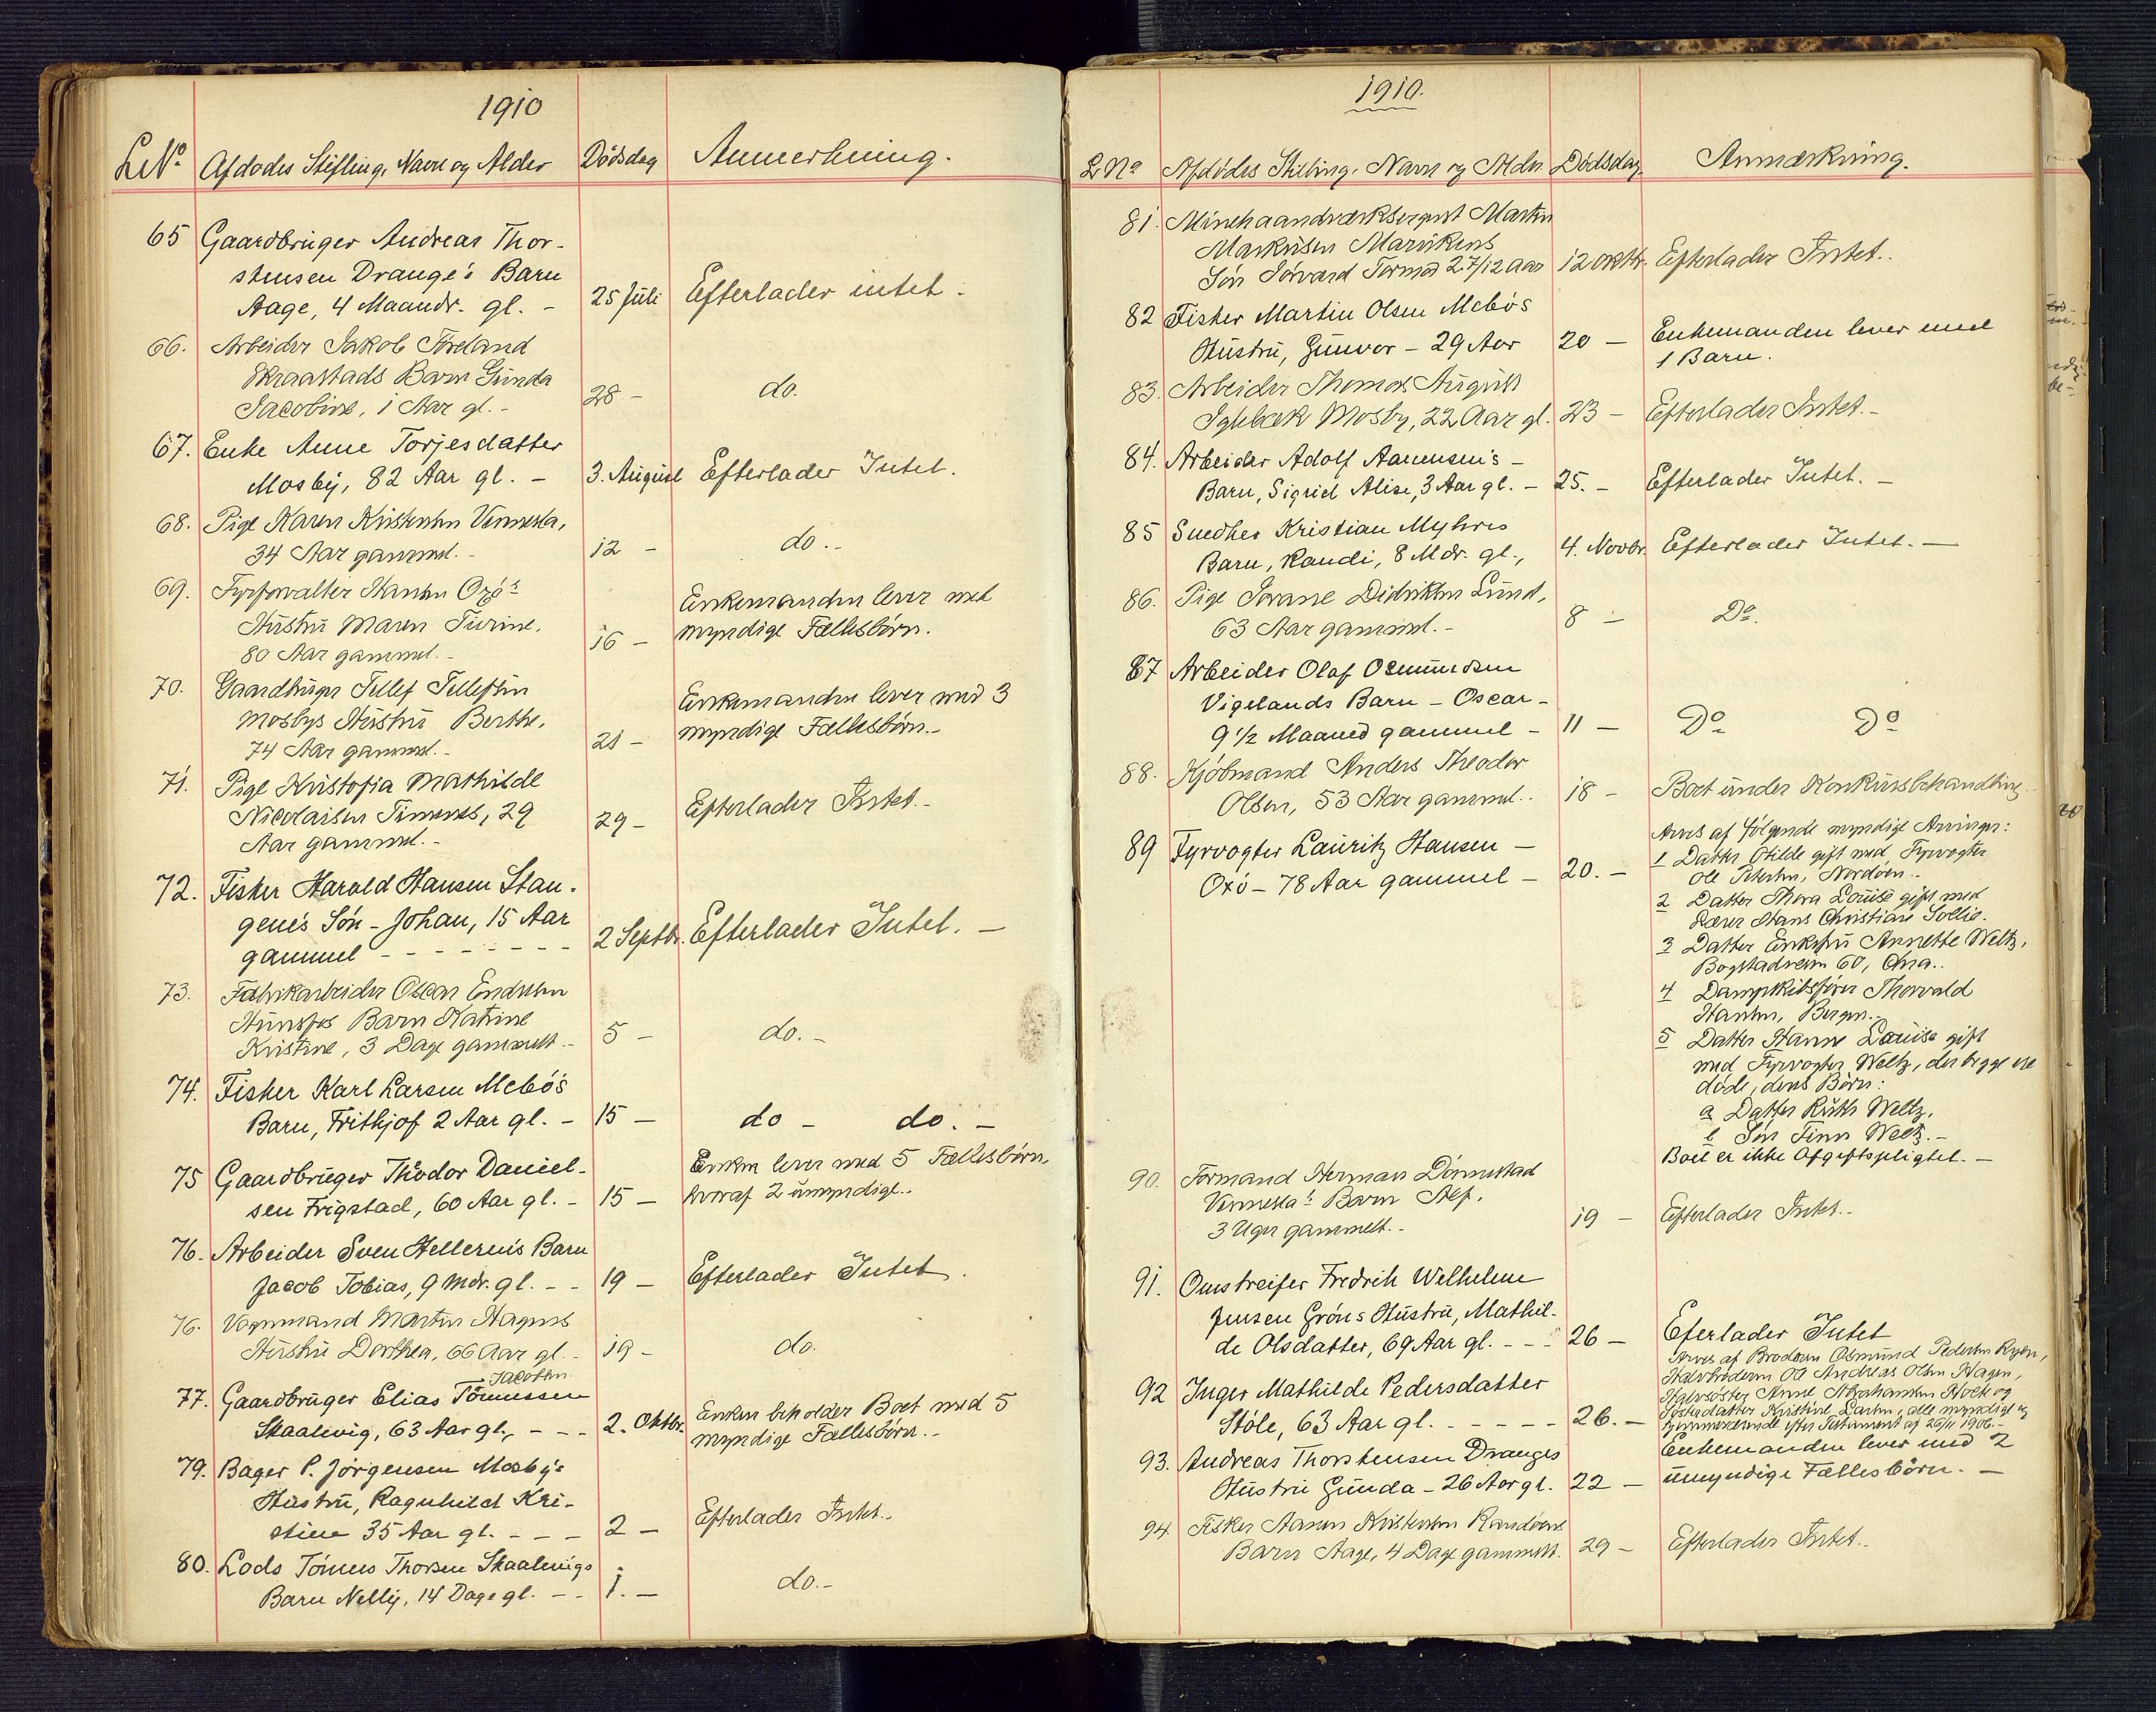 1910
LNo Afdødes Stilling, Navn og Alder Dødsdag Anmerkning.
65 Gaardbruger Andreas Thor-
stensen Drange's Barn
Aage, 4 Maandr. gl. - 25 Juli Efterlader intet -
66. Arbeider Jakob Föreland
Kraastads Barn Gunda
Jacobine, 1 Aar gl. - 28 - do.
67. Enke Anne Torjesdatter
Mosby, 82 Aar gl. - 3. August Efterlader Intet.
68. Pige Karen Kristensen Vennesla,
34 Aar gammel. - 12 - do. -
69. Fyrforvalter Hansen Oxö's
Hustru Maren Turine,
80 Aar gammel. - 16 - Enkemanden lever med
myndige Fællesbörn.
70. Gaardbruger Tellef Tellefsen
Mosbys Hustru Berthe,
74 Aar gammel. - 21 - Enkemanden lever med 3
myndige Fællesbörn. -
71. Pige Kristofia Mathilde
Nicolaisen Timenes, 29
Aar gammel. - 29 - Efterlader Intet. -
72. Fisker Harald Hansen Stan-
genes Søn - Johan, 15 Aar
gammel - - - - - - - 2 Septbr. Efterlader Intet. -
73. Fabrikarbeider Oscar Endresen
Hunsfos Barn Katrine
Kristine, 3 Dage gammelt. - 5 - do. -
74. Fisker Karl Larsen Mebö's
Barn, Frithjof 2 Aar gl. - 15 - do - do. -
75 Gaardbruger Theodor Daniel-
sen Frigstad, 60 Aar gl. - 15 - Enken lever med 5 Fællesbörn,
hvoraf 2 umyndige.
76. Arbeider Sven Hellerens Barn
Jacob Tobias, 9 Mdr. gl. - - 19 - Efterlader Intet.
76. Vognmand Martin Hagens
Hustru Dorthea, 66 Aar gl. - 19 - do.
Jacobsen
77. Gaardbruger Elias Tönnessen
Skaalevig, 63 Aar gl., - - - 2. Oktbr. Enken beholder Boet med 5
myndige Fællesbörn. -
79. Bager P. Jørgensen Mosby's
Hustru, Ragnhild Kri-
stine 35 Aar gl. - - - 2 - Efterlader Intet. -
80. Lods Tönnes Thorsen Skaalevigs
Barn Nelly, 14 Dage gl. - - 1. - do. -
1910.
LNo Afdödes Stilling, Navn og Alder. Dödsdag. Anmærkning.
81. Minehaandværksergent Martin
Markusen Marvikens
Sön Torvard Tormod 2 7/12 aar 12 oktbr. Efterlader Intet.
82 Fisker Martin Olsen Mebös
Hustru, Gunvor - 29 Aar 20 - Enkemanden lever med
1 Barn.
83. Arbeider Thomas August
Iglebæk Mosby, 22 Aar gl. 23 - Efterlader Intet. -
84. Arbeider Adolf Aanensens -
Barn, Sigrid Alise, 3 Aar gl. - 25. - Efterlader Intet. -
85 Snedker Kristian Myhres
Barn, Randi, 8 Mdr. gl., 4. Novbr. Efterlader Intet. -
86. Pige Lovise Didriksen Lund,
63 Aar gammel. - 8 - Do.
87 Arbeider Olaf Osmundsen
Vigelands Barn - Oscar -
9 1/2 Maaned gammel - 11 - Do Do
88. Kjöbmand Anders Theodor
Olsen, 53 Aar gammel. 18 - Boet under Konkursbehandling.
89 Fyrvogter Lauritz Hansen -
Oxö - 78 Aar gammel - 20. - Arves af følgende myndige Arvinger:
1 Datter Otilde gift med Fyrvogter
Ole Petersen, Nordöen. -
2 Datter Thora Louise gift med
Lærer Hans Christian Sollie.
3 Datter Enkefru Annette Weltz,
Bogstadveien 60, Chria..
4 Dampskibsförer Thorvald
Hansen, Bergen. -
5 Datter Hanne Louise gift
med Fyrvogter Weltz, der begge ere
döde, deres Börn:
a Datter Ruth Weltz.
b Sön Finn Weltz. -
Boet er ikke Afgiftspligtet. -
90. Formand Herman Dönnestad
Vennesla's Barn Alf,
3 Uger gammelt. - 19 - Efterlader Intet. -
91. Omstreifer Fredrik Wilhelm
Jensen Gröns Hustru, Mathil-
de Olsdatter, 69 Aar gl. - - - 26 - Eferlader Intet
92 Inger Mathilde Pedersdatter
Støle, 63 Aar gl. - - - - - 26. - Arves af Broderen Osmund Pedersen Ryen,
Halvbroderen Ole Andreas Olsen Hagen,
Halvsöster Anne Abrahamsen Hoek og
Søsterdatter Kristine Larsen, alle myndige og
hjemmeværende efter Testament af 26/11 1906. -
93. Andreas Thorstensen Dranges
Hustru Gunda - 26 Aar gl. 22 - Enkemanden lever med 2
umyndige Fællesbörn. -
94. Fisker Aanen Kristensen Randöens
Barn Aage, 4 Dage gammelt. 29 - Efterlader Intet.